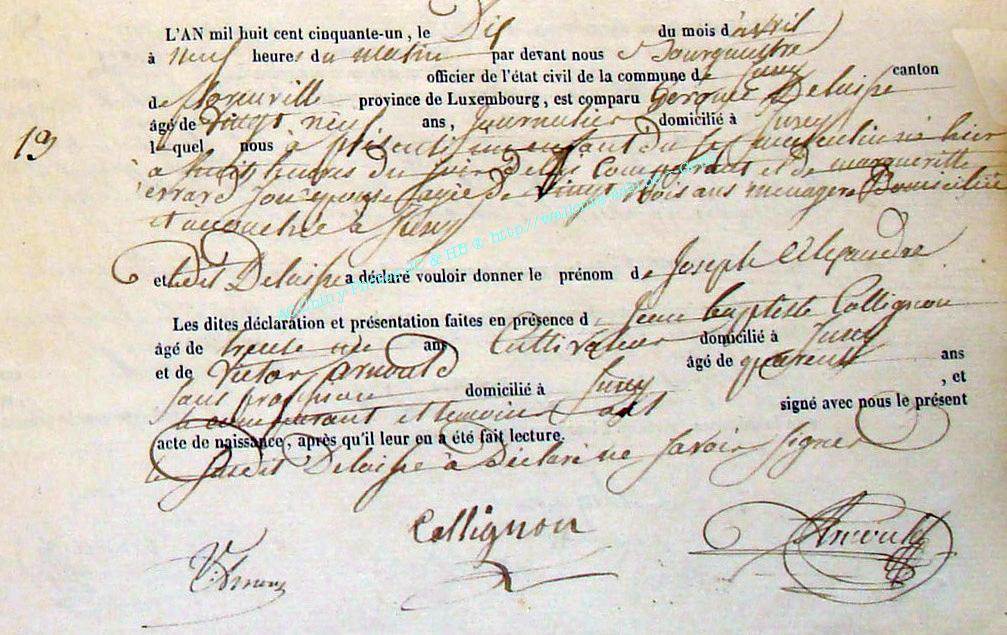 L'AN mil huit cent cinquante-un, le Dix du mois d'avril
à neuf heures du matin par devant nous Bourguestre
officier de l'état civil de la commune de canton
de province de Luxembourg, est comparu Delaisse
âgé de vingt neuf ans, journalier domicilié à
19
lequel nous à présenté un enfant du masculin né hier
à huit heures du soir de lui comparant et de margueritte
érard son épouse agée de vingt trois ans menagere Domiciliée
et accouchée à
et ledit Delaisse a déclaré vouloir donner le prénom de Joseph Alexandre
Les dites déclaration et présentation faites en présence d Jean Baptiste Collignon
âgé de ans Cultivateur domicilié à
et de Victor Arnould âgé de quarente ans
sans profession domicilié à , et
le comparant et temoins ont signé avec nous le présent
acte de naissance, après qu'il leur en a été fait lecture.
le susdit Delaisse à Déclaré ne savoir signer
Collignon
V. Arnould